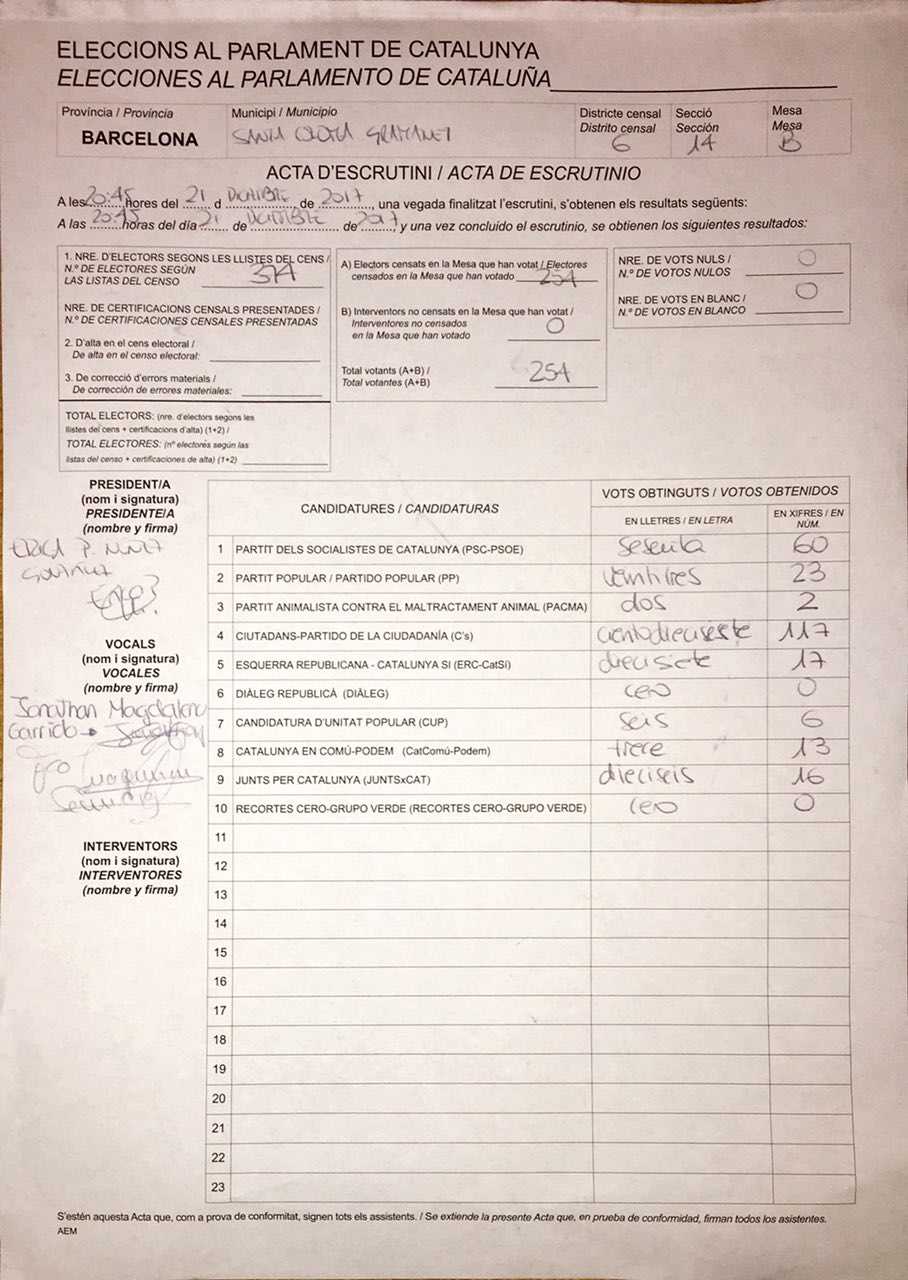 ELECCIONS AL PARLAMENT DE CATALUNYA
ELECCIONES AL PARLAMENTO DE CATALUÑA
Província / Provincia
BARCELONA
Municipi / Municipio
SANTA COLOMA GRAMANET
Districte censal
Distrito censal
6
Secció
Sección
14
Mesa
Mesa
B
ACTA D'ESCRUTINI / ACTA DE ESCRUTINIO
A les 20:45 hores del 21 d DICIEMBRE de 2017, una vegada finalitzat l'escrutini, s'obtenen els resultats següents:
A las 20:45 horas del día 21 de DICIEMBRE de 2017, y una vez concluido el escrutinio, se obtienen los siguientes resultados:
1. NRE. D'ELECTORS SEGONS LES LLISTES DEL CENS /
N.º DE ELECTORES SEGÚN
LAS LISTAS DEL CENSO 374
NRE. DE CERTIFICACIONS CENSALS PRESENTADES /
N.º DE CERTIFICACIONES CENSALES PRESENTADAS
2. D'alta en el cens electoral /
De alta en el censo electoral:
3. De correcció d'errors materials /
De corrección de errores materiales:
TOTAL ELECTORS: (nre. d'electors segons les
llistes del cens + certificacions d'alta) (1+2) /
TOTAL ELECTORES: (nº electores según las
listas del censo + certificaciones de alta) (1+2)
A) Electors censats en la Mesa que han votat / Electores
censados en la Mesa que han votado 254
B) Interventors no censats en la Mesa que han votat /
Interventores no censados
en la Mesa que han votado 0
Total votants (A+B) /
Total votantes (A+B) 254
NRE. DE VOTS NULS /
N.º DE VOTOS NULOS 0
NRE. DE VOTS EN BLANC /
N.º DE VOTOS EN BLANCO 0
PRESIDENT/A
(nom i signatura)
PRESIDENTE/A
(nombre y firma)
VOCALS
(nom i signatura)
VOCALES
(nombre y firma)
Jonathan Magdalena
Garrido
Fco
INTERVENTORS
(nom i signatura)
INTERVENTORES
(nombre y firma)
CANDIDATURES / CANDIDATURAS
VOTS OBTINGUTS / VOTOS OBTENIDOS
EN LLETRES / EN LETRA
EN XIFRES / EN NÚM.
1 PARTIT DELS SOCIALISTES DE CATALUNYA (PSC-PSOE) sesenta 60
2 PARTIT POPULAR / PARTIDO POPULAR (PP) veintitres 23
3 PARTIT ANIMALISTA CONTRA EL MALTRACTAMENT ANIMAL (PACMA) dos 2
4 CIUTADANS-PARTIDO DE LA CIUDADANÍA (C's) cientodiecisiete 117
5 ESQUERRA REPUBLICANA - CATALUNYA SI (ERC-CatSí) diecisiete 17
6 DIÀLEG REPUBLICÀ (DIÀLEG) cero 0
7 CANDIDATURA D'UNITAT POPULAR (CUP) seis 6
8 CATALUNYA EN COMÚ-PODEM (CatComú-Podem) trece 13
9 JUNTS PER CATALUNYA (JUNTSxCAT) dieciseis 16
10 RECORTES CERO-GRUPO VERDE (RECORTES CERO-GRUPO VERDE) cero 0
11
12
13
14
15
16
17
18
19
20
21
22
23
S'estén aquesta Acta que, com a prova de conformitat, signen tots els assistents. / Se extiende la presente Acta que, en prueba de conformidad, firman todos los asistentes.
AEM